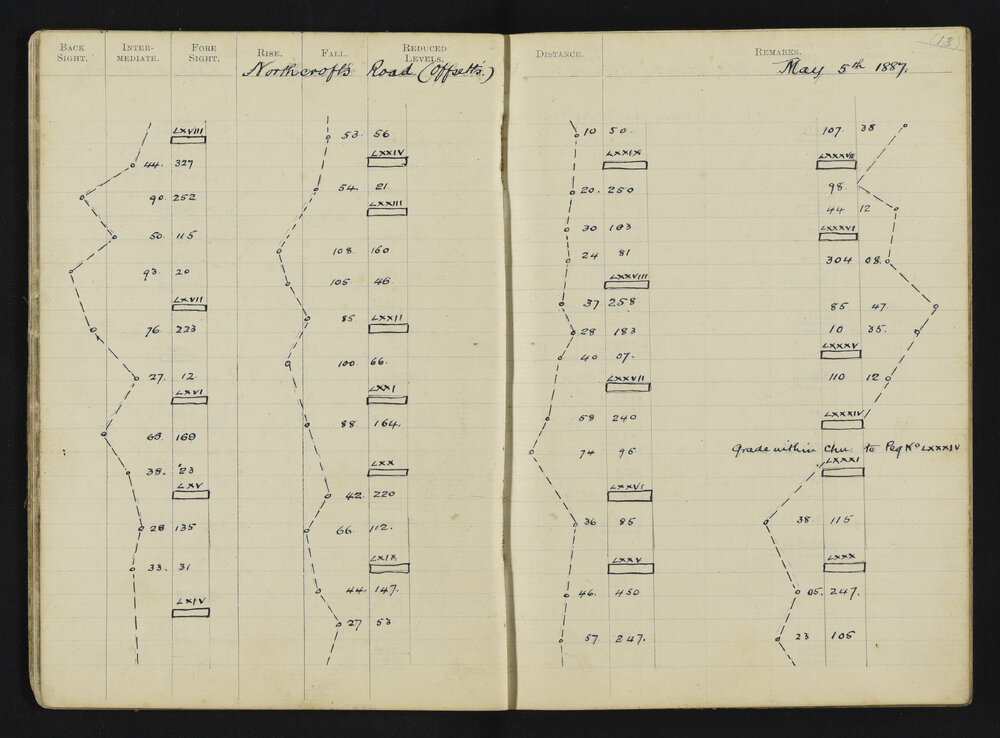 BACK SIGHT. INTER- MEDIATE. FORE SIGHT. RISE. FALL. REDUCED LEVELS.
Northcroft's Road (offsetts.)
LXVIII
44. 327
90 252
50. 115
93 20
LXVII
76 223
27. 12
LXVI
69. 169
38. 23
LXV
28 135
33. 31
LXIV
53. 56
LXXIV
54. 21
LXXIII
108. 160
105 46.
85 LXXII
100 66.
LXXI
88 164.
LXX
42. 220
66. 112.
LXIX
44. 147.
27 53
DISTANCE. REMARKS. (13)
May 5th 1887.
10 50.
LXXIX
20. 250
30 183
24 81
LXXVIII
37 258
28 183
40 07.
LXXVII
58 240
74 96
LXXVI
36 85
LXXV
46. 450
57 247.
107 38
LXXXVII
98
44 12
LXXXVI
304 08.
85 47.
10 35.
LXXXV
110 12
LXXXIV
Grade within to Peg No LXXXIV
LXXXI
38. 115
LXXX
05. 247.
23 105